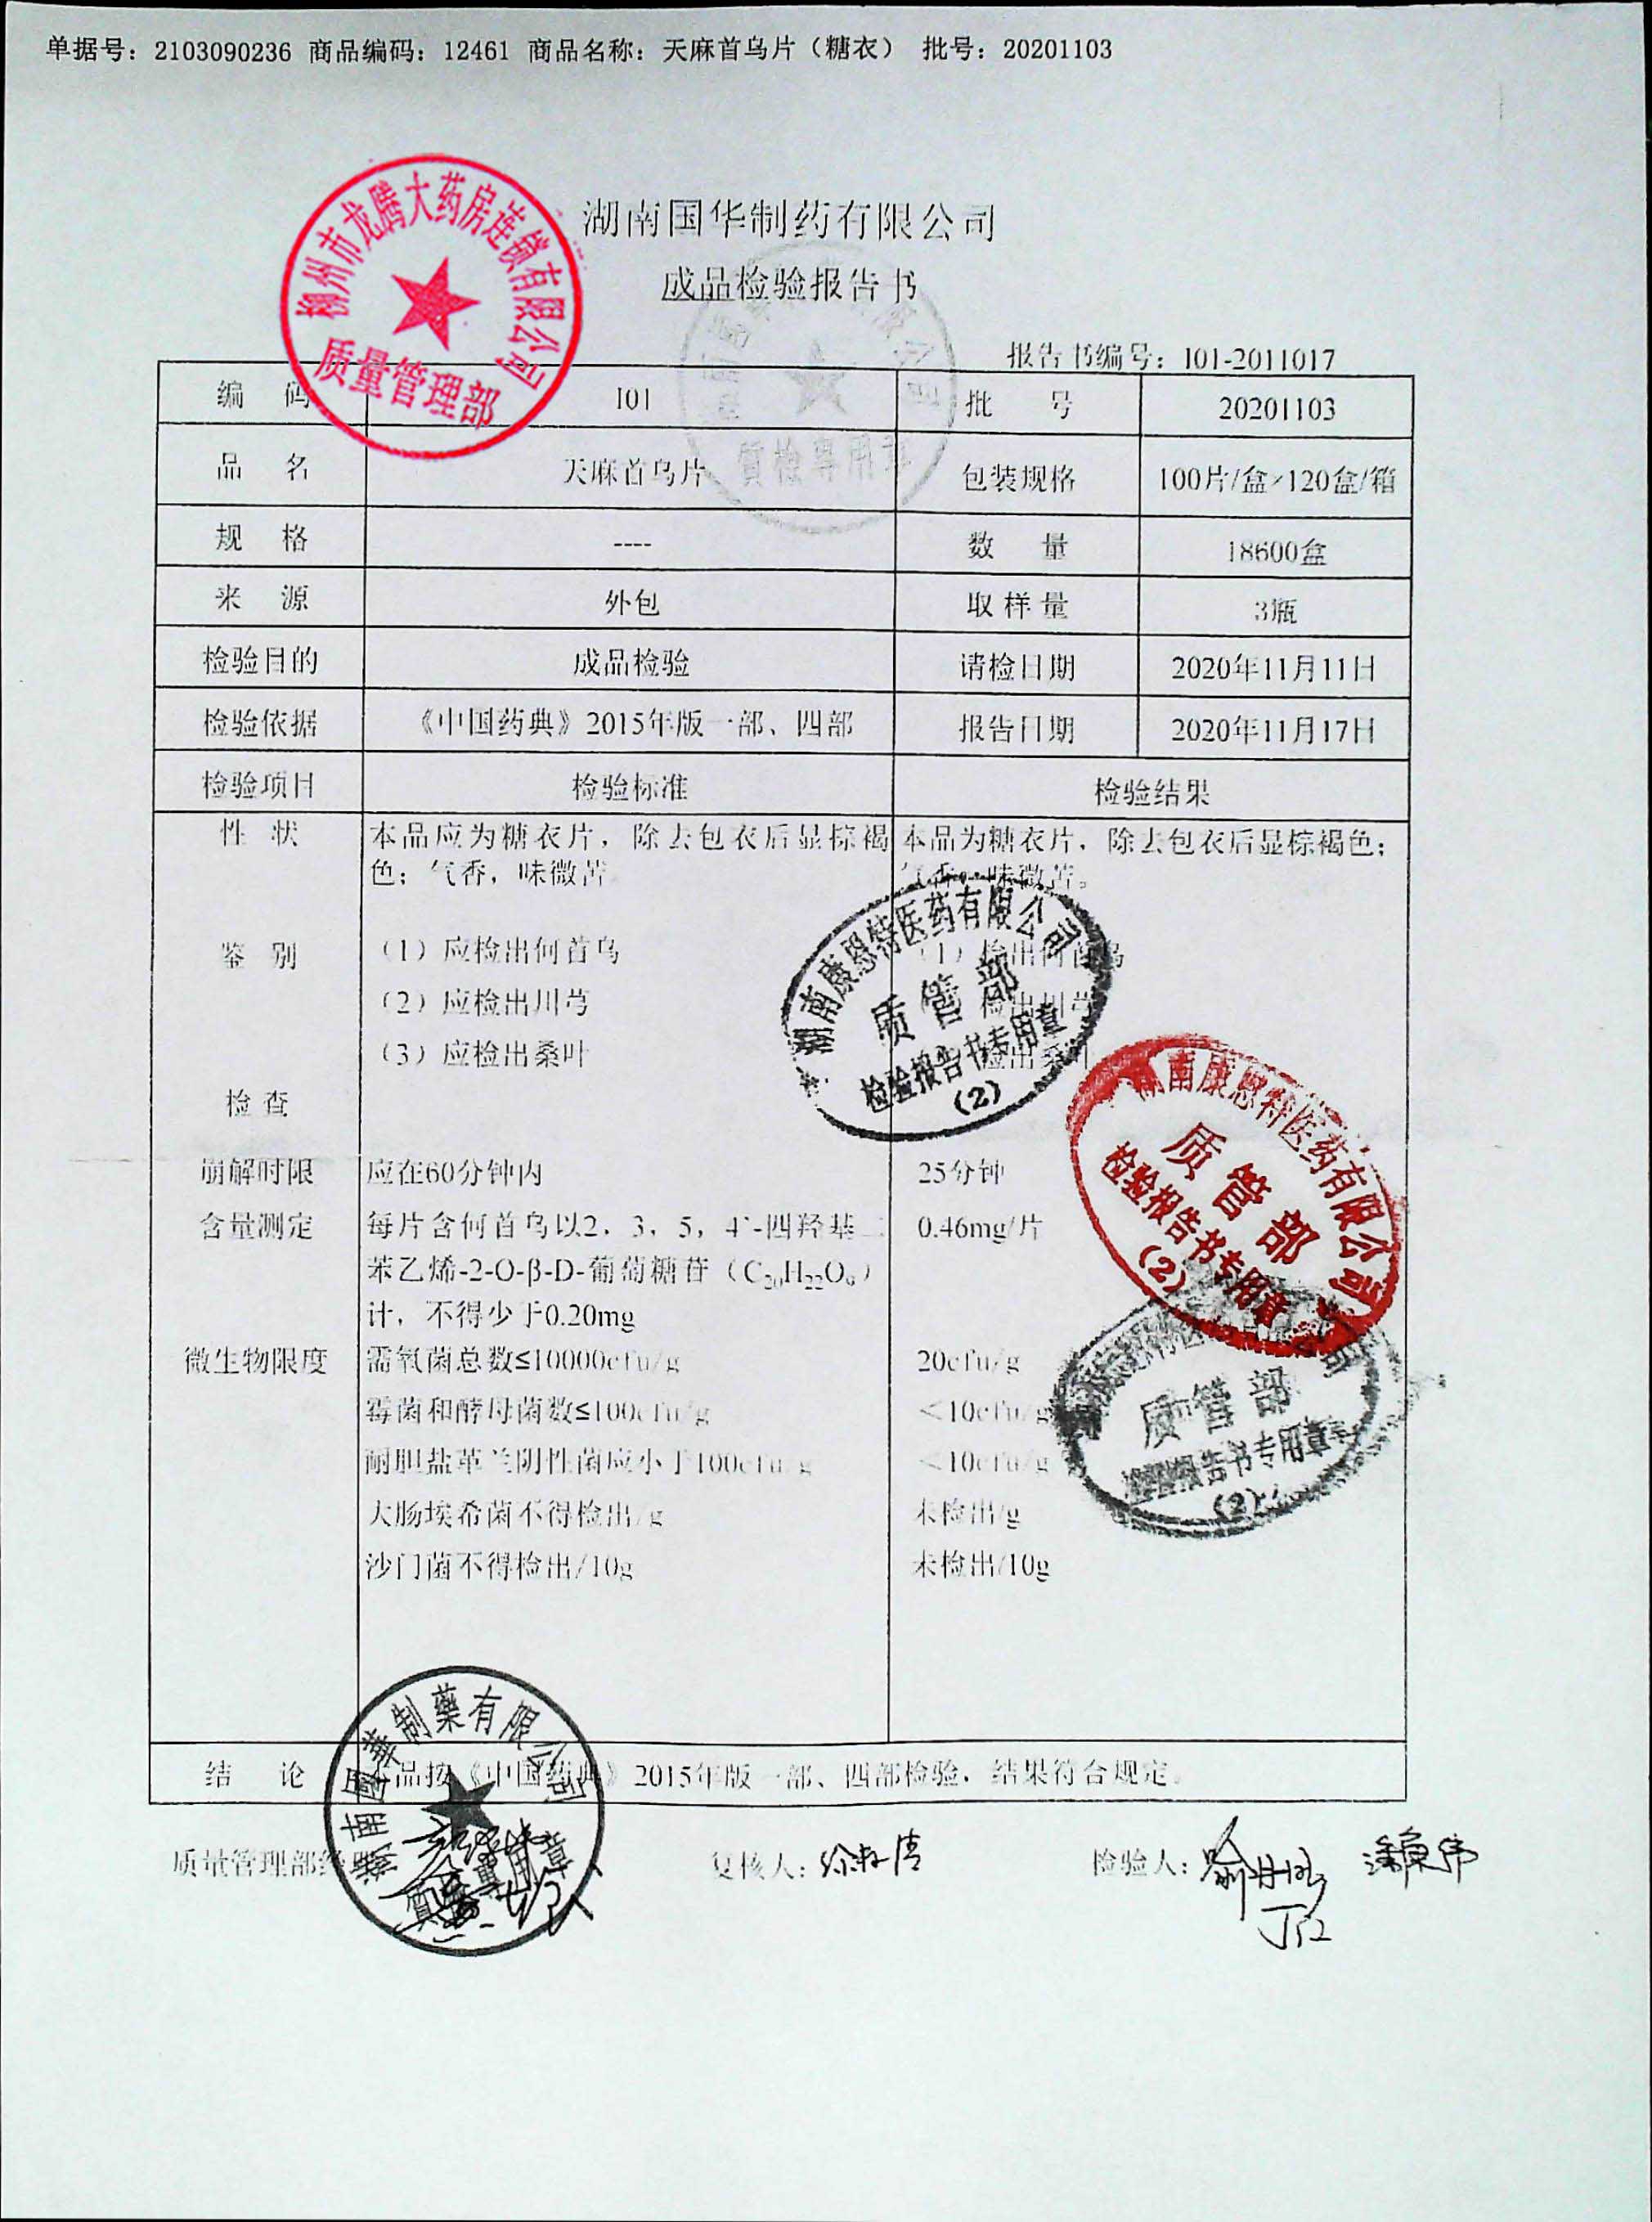 单据号：2103090236 商品编码：12461 商品名称：天麻首乌片（糖衣） 批号：20201103
湖南国华制药有限公司
成品检验报告书
报告书编号：I01-2011017
柳州市龙腾大药房连锁有限公司
质量管理部
质检专用章
编 码 I01 批 号 20201103
品 名 天麻首乌片 包装规格 100片/盒×120盒/箱
规 格 ---- 数 量 18600盒
来 源 外包 取样量 3瓶
检验目的 成品检验 请检日期 2020年11月11日
检验依据 《中国药典》2015年版一部、四部 报告日期 2020年11月17日
检验项目 检验标准 检验结果
性 状 本品应为糖衣片，除去包衣后显棕褐 本品为糖衣片，除去包衣后显棕褐色；
色；气香，味微苦。 气香，味微苦。
鉴 别 （1）应检出何首乌 （1）检出何首乌
（2）应检出川芎 检出川芎
（3）应检出桑叶 检出桑叶
检 查
崩解时限 应在60分钟内 25分钟
含量测定 每片含何首乌以2，3，5，4`-四羟基二 0.46mg/片
苯乙烯-2-O-β-D-葡萄糖苷（C₂₀H₂₂O₉）
计，不得少于0.20mg
微生物限度 需氧菌总数≤10000cfu/g 20cfu/g
霉菌和酵母菌数≤100cfu/g <10cfu/g
耐胆盐革兰阴性菌应小于100cfu/g <10cfu/g
大肠埃希菌不得检出/g 未检出/g
沙门菌不得检出/10g 未检出/10g
湖南康恩特医药有限公司
质管部
检验报告书专用章
（2）
南康恩特医药有限公司
质管部
检验报告书专用章
（2）
质管部
检验报告书专用章
（2）
结 论 品按《中国药典》2015年版一部、四部检验，结果符合规定。
湖南國華制藥有限公司
质量管理部 复核人： 检验人：
丁江